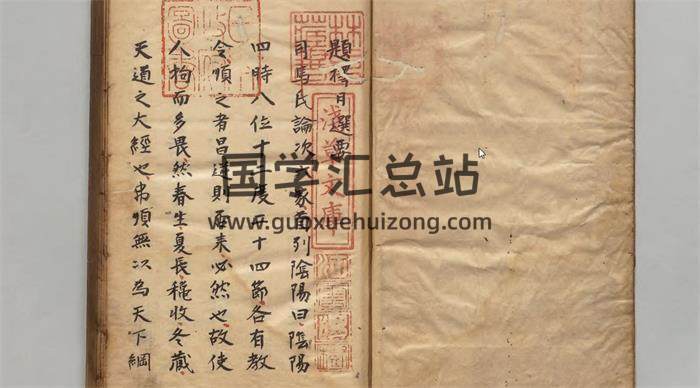 題擇日選要
司馬氏論次六家而列陰陽曰陰陽
四時八位十二度二十四節各有教
令順之者昌逆則
來必然也故使
人拘而多畏然春生夏長穐收冬藏
天道之大經也弗順無以為天下綱
淺草文庫
国学汇总站
www.guoxuehuizong.com